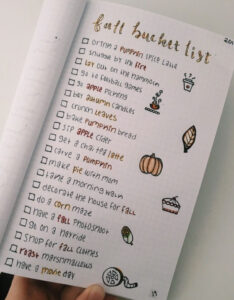 fall bucket list
drink a pumpkin spice latte
snuggle by the fire
lay out on the hammock
go to football games
go apple picking
buy autumn candles
crunch leaves
bake pumpkin bread
sip apple cider
get a chai tea latte
carve a pumpkin
make pie with mom
take a morning walk
decorate the house for fall
do a corn maze
have a fall photoshoot
go on a hayride
shop for fall clothes
roast marshmallows
have a movie day